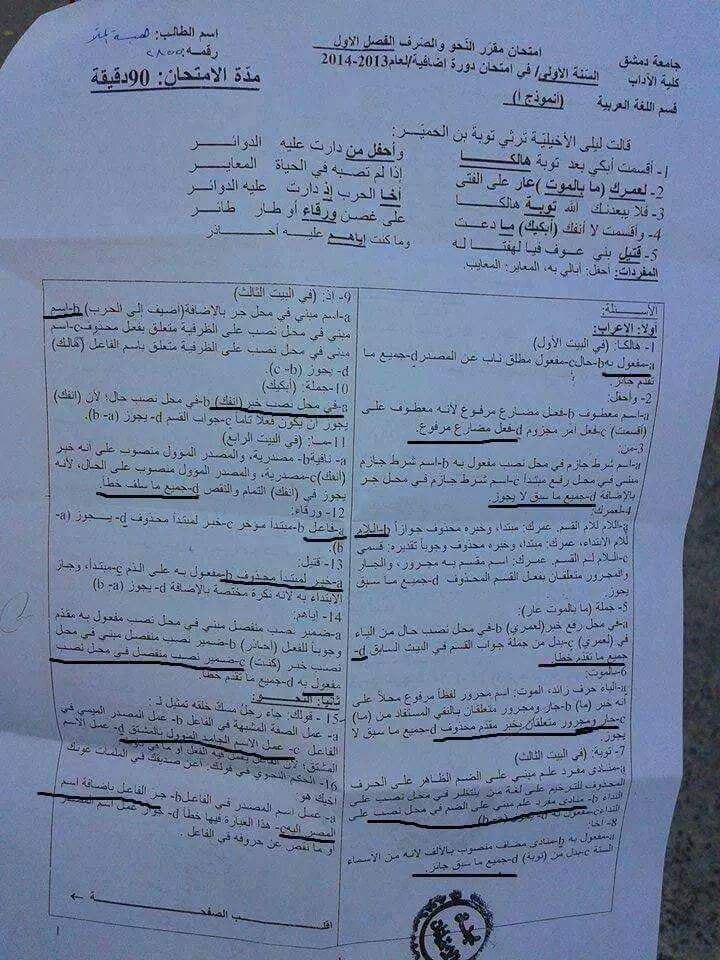 جامعة دمشق
كلية الآداب
قسم اللغة العربية
امتحان مقرر النحو والصرف الفصل الاول
السنة الاولى/ في امتحان دورة اضافية/لعام2013-2014
(أنموذج أ)
اسم الطالب: هبة
رقمه:
مدّة الامتحان: 90دقيقة
قالت ليلى الأخيليّة ترثي توبة بن الحميّر:
1- أقسمت أبكي بعد توبة هالكا وأحفل من دارت عليه الدوائر
2- لعمرك (ما بالموت )عار على الفتى إذا لم تصبه في الحياة المعاير
3- فلا يبعدنك الله توبة هالكا أخا الحرب إذ دارت عليه الدوائر
4- وأقسمت لا أنفك (أبكيك) ما دعت على غصن ورقاء أو طار طائر
5- قتيل بني عوف فيا لهفتا له وما كنت إياهم عليه أحاذر
المفردات: أحفل: أبالي به، المعاير: المعايب.
الأسئلة:
أولا: الاعراب:
1- هالكا: (في البيت الأول)
a-مفعول به b-حال c-مفعول مطلق ناب عن المصدر d-جميع ما
تقدم جائز.
2- وأحفل:
a-اسم معطوف b-فعل مضارع مرفوع لأنه معطوف على
(أقسمت) c-فعل أمر مجزوم d-فعل مضارع مرفوع.
3-من:
a-اسم شرط جازم في محل نصب مفعول به b-اسم شرط جازم
مبني في محل رفع مبتدأ c-اسم شرط جازم في محل جر
بالإضافة d-جميع ما سبق لا يجوز.
4-لعمرك:
a-اللام لام القسم، عمرك: مبتدا، وخبره محذوف جوازاً b-اللام
لام الابتداء، عمرك: مبتدا، وخبره محذوف وجوباً تقديره: قسمي
c-اللام لام القسم. عمرك: اسم مقسم به مجرور، والجار
والمجرور متعلقان بفعل القسم المحذوف d-جميع ما سبق
يجوز.
5- جملة (ما بالموت عار):
a-في محل رفع خبر(لعمري) b-في محل نصب حال من الياء
في (لعمري) c-بدل من جملة جواب القسم في البيت السابق d-
جميع ما تقدم خطأ.
6-بالموت:
a-الباء حرف زائد، الموت: اسم مجرور لفظاً مرفوع محلاً على
أنه خبر (ما) b-جار ومجرور متعلقان بالنفي المستفاد من (ما)
c-جار ومجرور متعلقان بخبر مقدم محذوف d-جميع ما سبق لا
يجوز.
7- توبة: (في البيت الثالث)
a-منادى مفرد علم مبني على الضم الظاهر على الحرف
المحذوف للترخيم على لغة من ينتظر في محل نصب على
النداء b-منادى مفرد علم مبني على الضم في محل نصب على
النداء c-مفعول به
8- أخا:
a-مفعول به b-منادى مضاف منصوب بالألف لأنه من الأسماء
الستة c-بدل من (توبة) d-جميع ما سبق جائز.
9- إذ: (في البيت الثالث)
a-اسم مبني في محل جر بالإضافة(اضيف الى الحرب) b-اسم
مبني في محل نصب على الظرفية متعلق بفعل محذوف c-اسم
مبني في محل نصب على الظرفية متعلق باسم الفاعل (هالكا)
d- يجوز (b-c).
10-جملة: (أبكيك)
a-في محل نصب خبر (انفك) b-في محل نصب حال؛ لأن (انفك)
يجوز أن يكون فعلاً تاماً c-جواب القسم d- يجوز (a-b).
11-ما: (في البيت الرابع)
a- نافية b- مصدرية، والمصدر المؤول منصوب على أنه خبر
(انفك) c-مصدرية، والمصدر المؤول منصوب على الحال، لأنه
يجوز في (انفك) التمام والنقص d-جميع ما سلف خطأ.
12- ورقاء:
a-فاعل b-مبتدأ مؤخر c-خبر لمبتدأ محذوف d- يجوز (a-
b).
13- قتيل:
a-خبر لمبتدأ محذوف b-مفعول به على الذم c-مبتدأ، وجاز
الابتداء به لأنه نكرة مختصة بالإضافة d-يجوز (a-b)
14- إياهم:
a-ضمير نصب منفصل مبني في محل نصب مفعول به مقدم
وجوباً للفعل (احاذر) b-ضمير نصب منفصل مبني في محل
نصب خبر (كنت) c-ضمير نصب منفصل في محل نصب
مفعول به d-جميع ما تقدم خطأ.
ثانيا: النحو:
15- قولك: جاء رجلٌ مسكٌ خلقه تمثيل لـ:
a- عمل الصفة المشبهة في الفاعل b- عمل المصدر الميمي في
الفاعل c- عمل الاسم الجامد المؤول بالمشتق d- عمل الاسم
المشتق؛
16- الحكم النحوي في قولك: أعن صديقك في الملمات عونك
أخيك هو:
a- عمل اسم المصدر في الفاعل b- جر الفاعل باضافة اسم
المصدر اليه c- هذا العبارة فيها خطأ d- جواز عمل اسم المصدر
أو ما نقص عن حروفه في الفاعل.
اقلب الصفحة ←
1